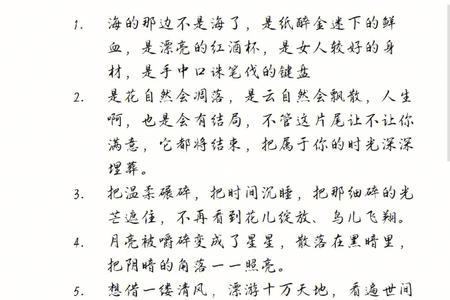 1. 海的那边不是海了，是纸醉金迷下的鲜
血，是漂亮的红酒杯，是女人较好的身
材，是手中口诛笔伐的键盘
2. 是花自然会凋落，是云自然会飘散，人生
啊，也是会有结局，不管这片尾让不让你
满意，它都将结束，把属于你的时光深深
埋葬。
3. 把温柔碾碎，把时间沉睡，把那细碎的光
芒遮住，不再看到花儿绽放、鸟儿飞翔。
4. 月亮被嚼碎变成了星星，散落在黑暗里，
把阴暗的角落一一照亮。
5. 想借一缕清风，漂游十万天地，看遍世间